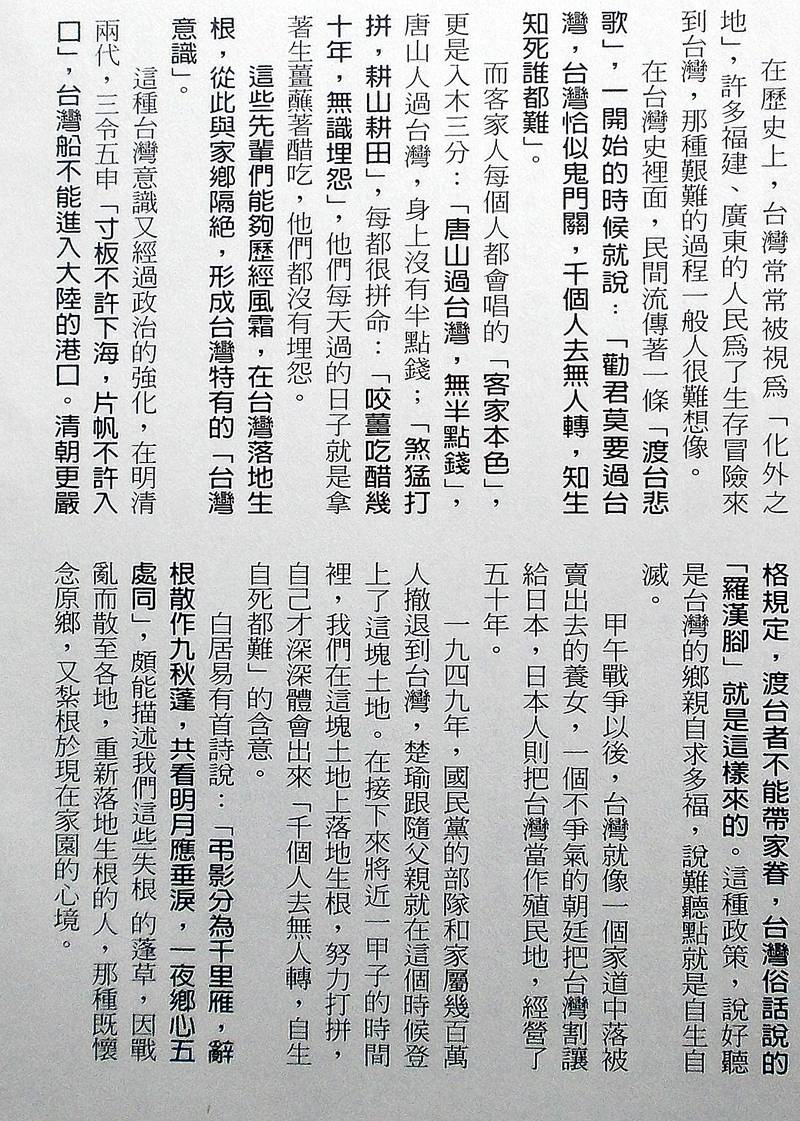 在歷史上，台灣常常被視為「化外之
地」，許多福建、廣東的人民為了生存冒險來
到台灣，那種艱難的過程一般人很難想像。
在台灣史裡面，民間流傳著一條「渡台悲
歌」，一開始的時候就說：「勸君莫要過台
灣，台灣恰似鬼門關，千個人去無人轉，知生
知死誰都難」。
而客家人每個人都會唱的「客家本色」，
更是入木三分：「唐山過台灣，無半點錢」，
唐山人過台灣，身上沒有半點錢；「煞猛打
拼，耕山耕田」，每都很拼命：「咬薑吃醋幾
十年，無識埋怨」，他們每天過的日子就是拿
著生薑蘸著醋吃，他們都沒有埋怨。
這些先輩們能夠歷經風霜，在台灣落地生
根，從此與家鄉隔絕，形成台灣特有的「台灣
意識」。
這種台灣意識又經過政治的強化，在明清
兩代，三令五申「寸板不許下海，片帆不許入
口」，台灣船不能進入大陸的港口。清朝更嚴
格規定，渡台者不能帶家眷，台灣俗話說的
「羅漢腳」就是這樣來的。這種政策，說好聽
是台灣的鄉親自求多福，說難聽點就是自生自
滅。
甲午戰爭以後，台灣就像一個家道中落被
賣出去的養女，一個不爭氣的朝廷把台灣割讓
給日本，日本人則把台灣當作殖民地，經營了
五十年。
一九四九年，國民黨的部隊和家屬幾百萬
人撤退到台灣，楚瑜跟隨父親就在這個時候登
上了這塊土地。在接下來將近一甲子的時間
裡，我們在這塊土地上落地生根，努力打拼，
自己才深深體會出來「千個人去無人轉，自生
自死都難」的含意。
白居易有首詩說：「弔影分為千里雁，辭
根散作九秋蓬，共看明月應垂淚，一夜鄉心五
處同」，頗能描述我們這些失根的蓬草，因戰
亂而散至各地，重新落地生根的人，那種既懷
念原鄉，又紮根於現在家園的心境。